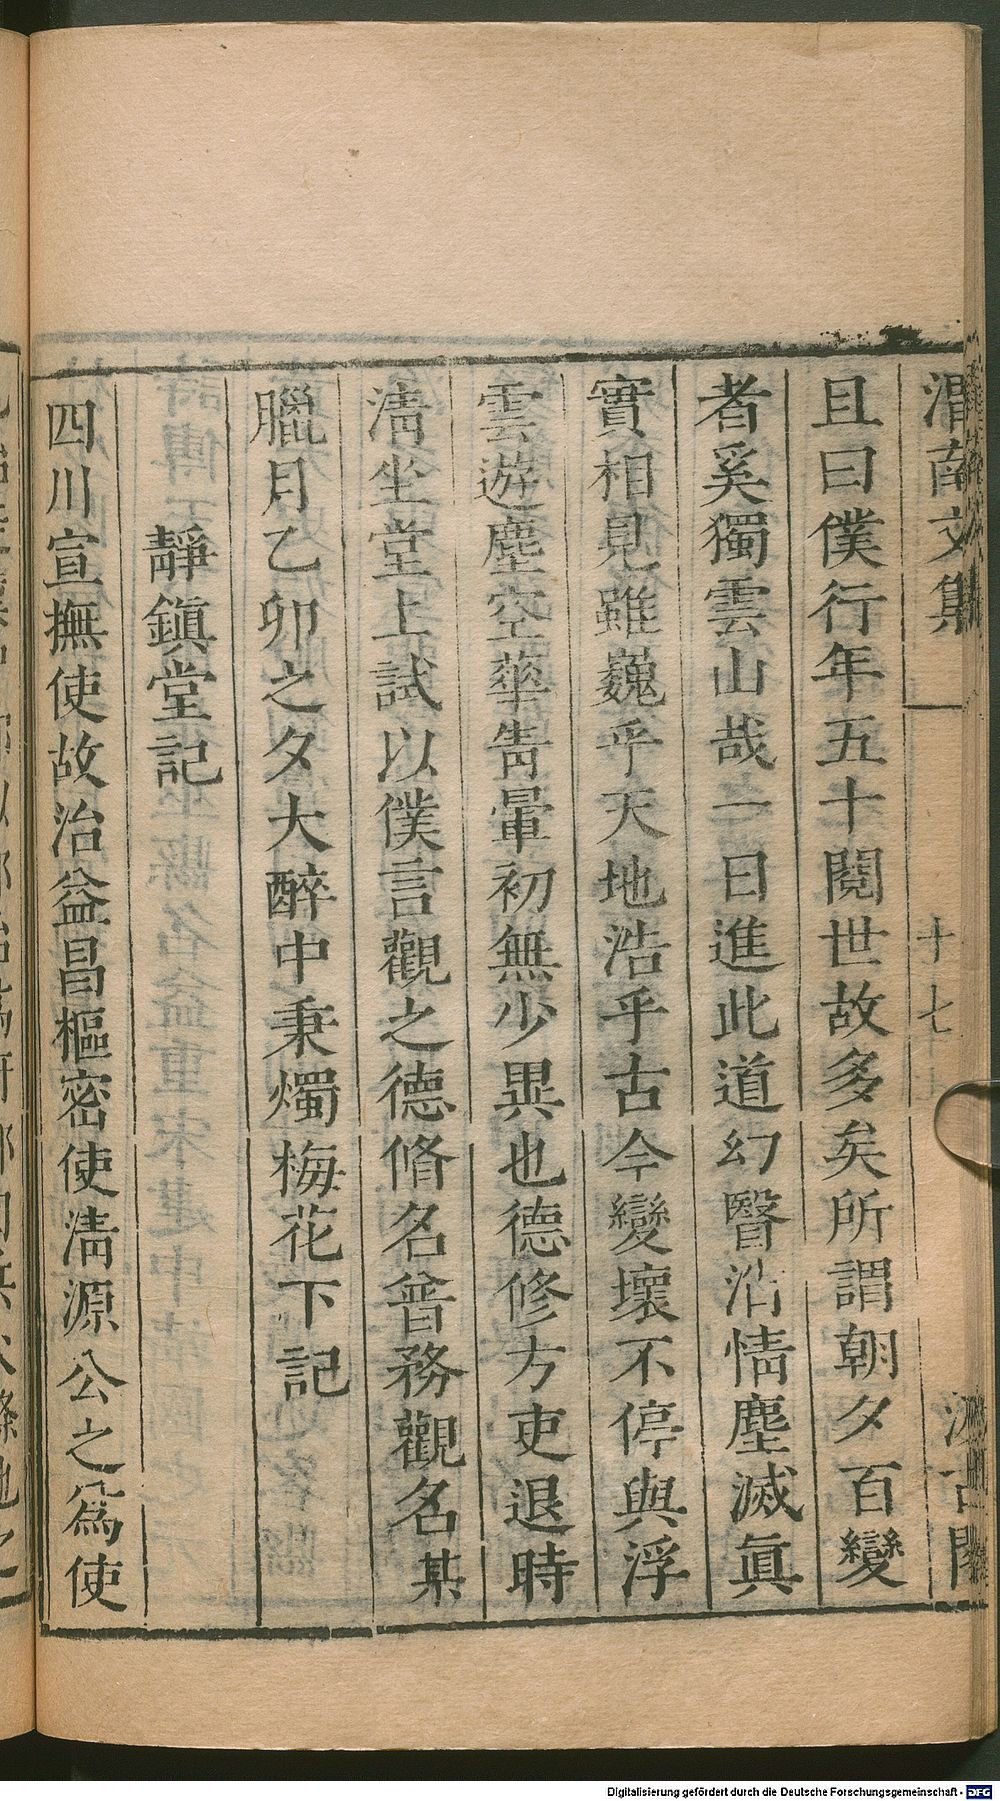 渭南文集
十七
汲古閣
且曰僕行年五十閱世故多矣所謂朝夕百變
者奚獨雲山哉一日進此道幻翳沿情塵滅眞
實相見雖巍乎天地浩乎古今變壞不停與浮
雲遊塵空華眚暈初無少異也德修方吏退時
淸坐堂上試以僕言觀之德脩名普務觀名某
臘月乙卯之夕大醉中秉燭梅花下記
靜鎭堂記
四川宣撫使故治益昌樞密使淸源公之爲使
Digitalisierung gefördert durch die Deutsche Forschungsgemeinschaft - DFG